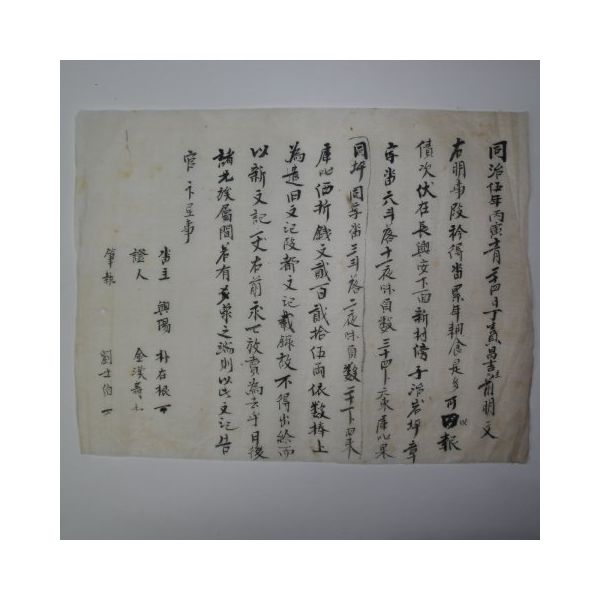 同治伍年丙寅十二月二十四日丁 前明文
右明事段矜得畓累年耕食是多可以報
債次伏在長興安下面新村傍子治岩坪章
字畓六斗落十一夜味負數三十四卜六束庫乙果
同坪同字畓三斗落二夜味負數二十卜四束
庫乙価折錢文貳百貳拾伍兩依數捧上
為遣旧文記段都文記載錄故不得出給而
以新文記一丈右前永永放賣為去乎日後
諸兄族屬間若有爭葉之端則以此文記告
官卞呈事
畓主 興陽 朴右根
證人 金漢壽
筆執 劉士伯